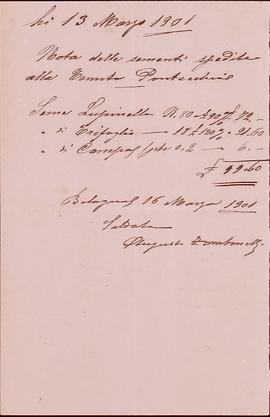 li 13 Marzo 1901
Nota delle sementi spedite
alla Tenuta Pontecchio
Seme Lupinella N. 80 - £ 90 % £ 72 -
" di Trifoglio — 18 £ 120 % " 21.60
" di Canepa 0.2 " 6. -
£ 99.60
Bologna 16 Marzo 1901
Saldato
Augusto